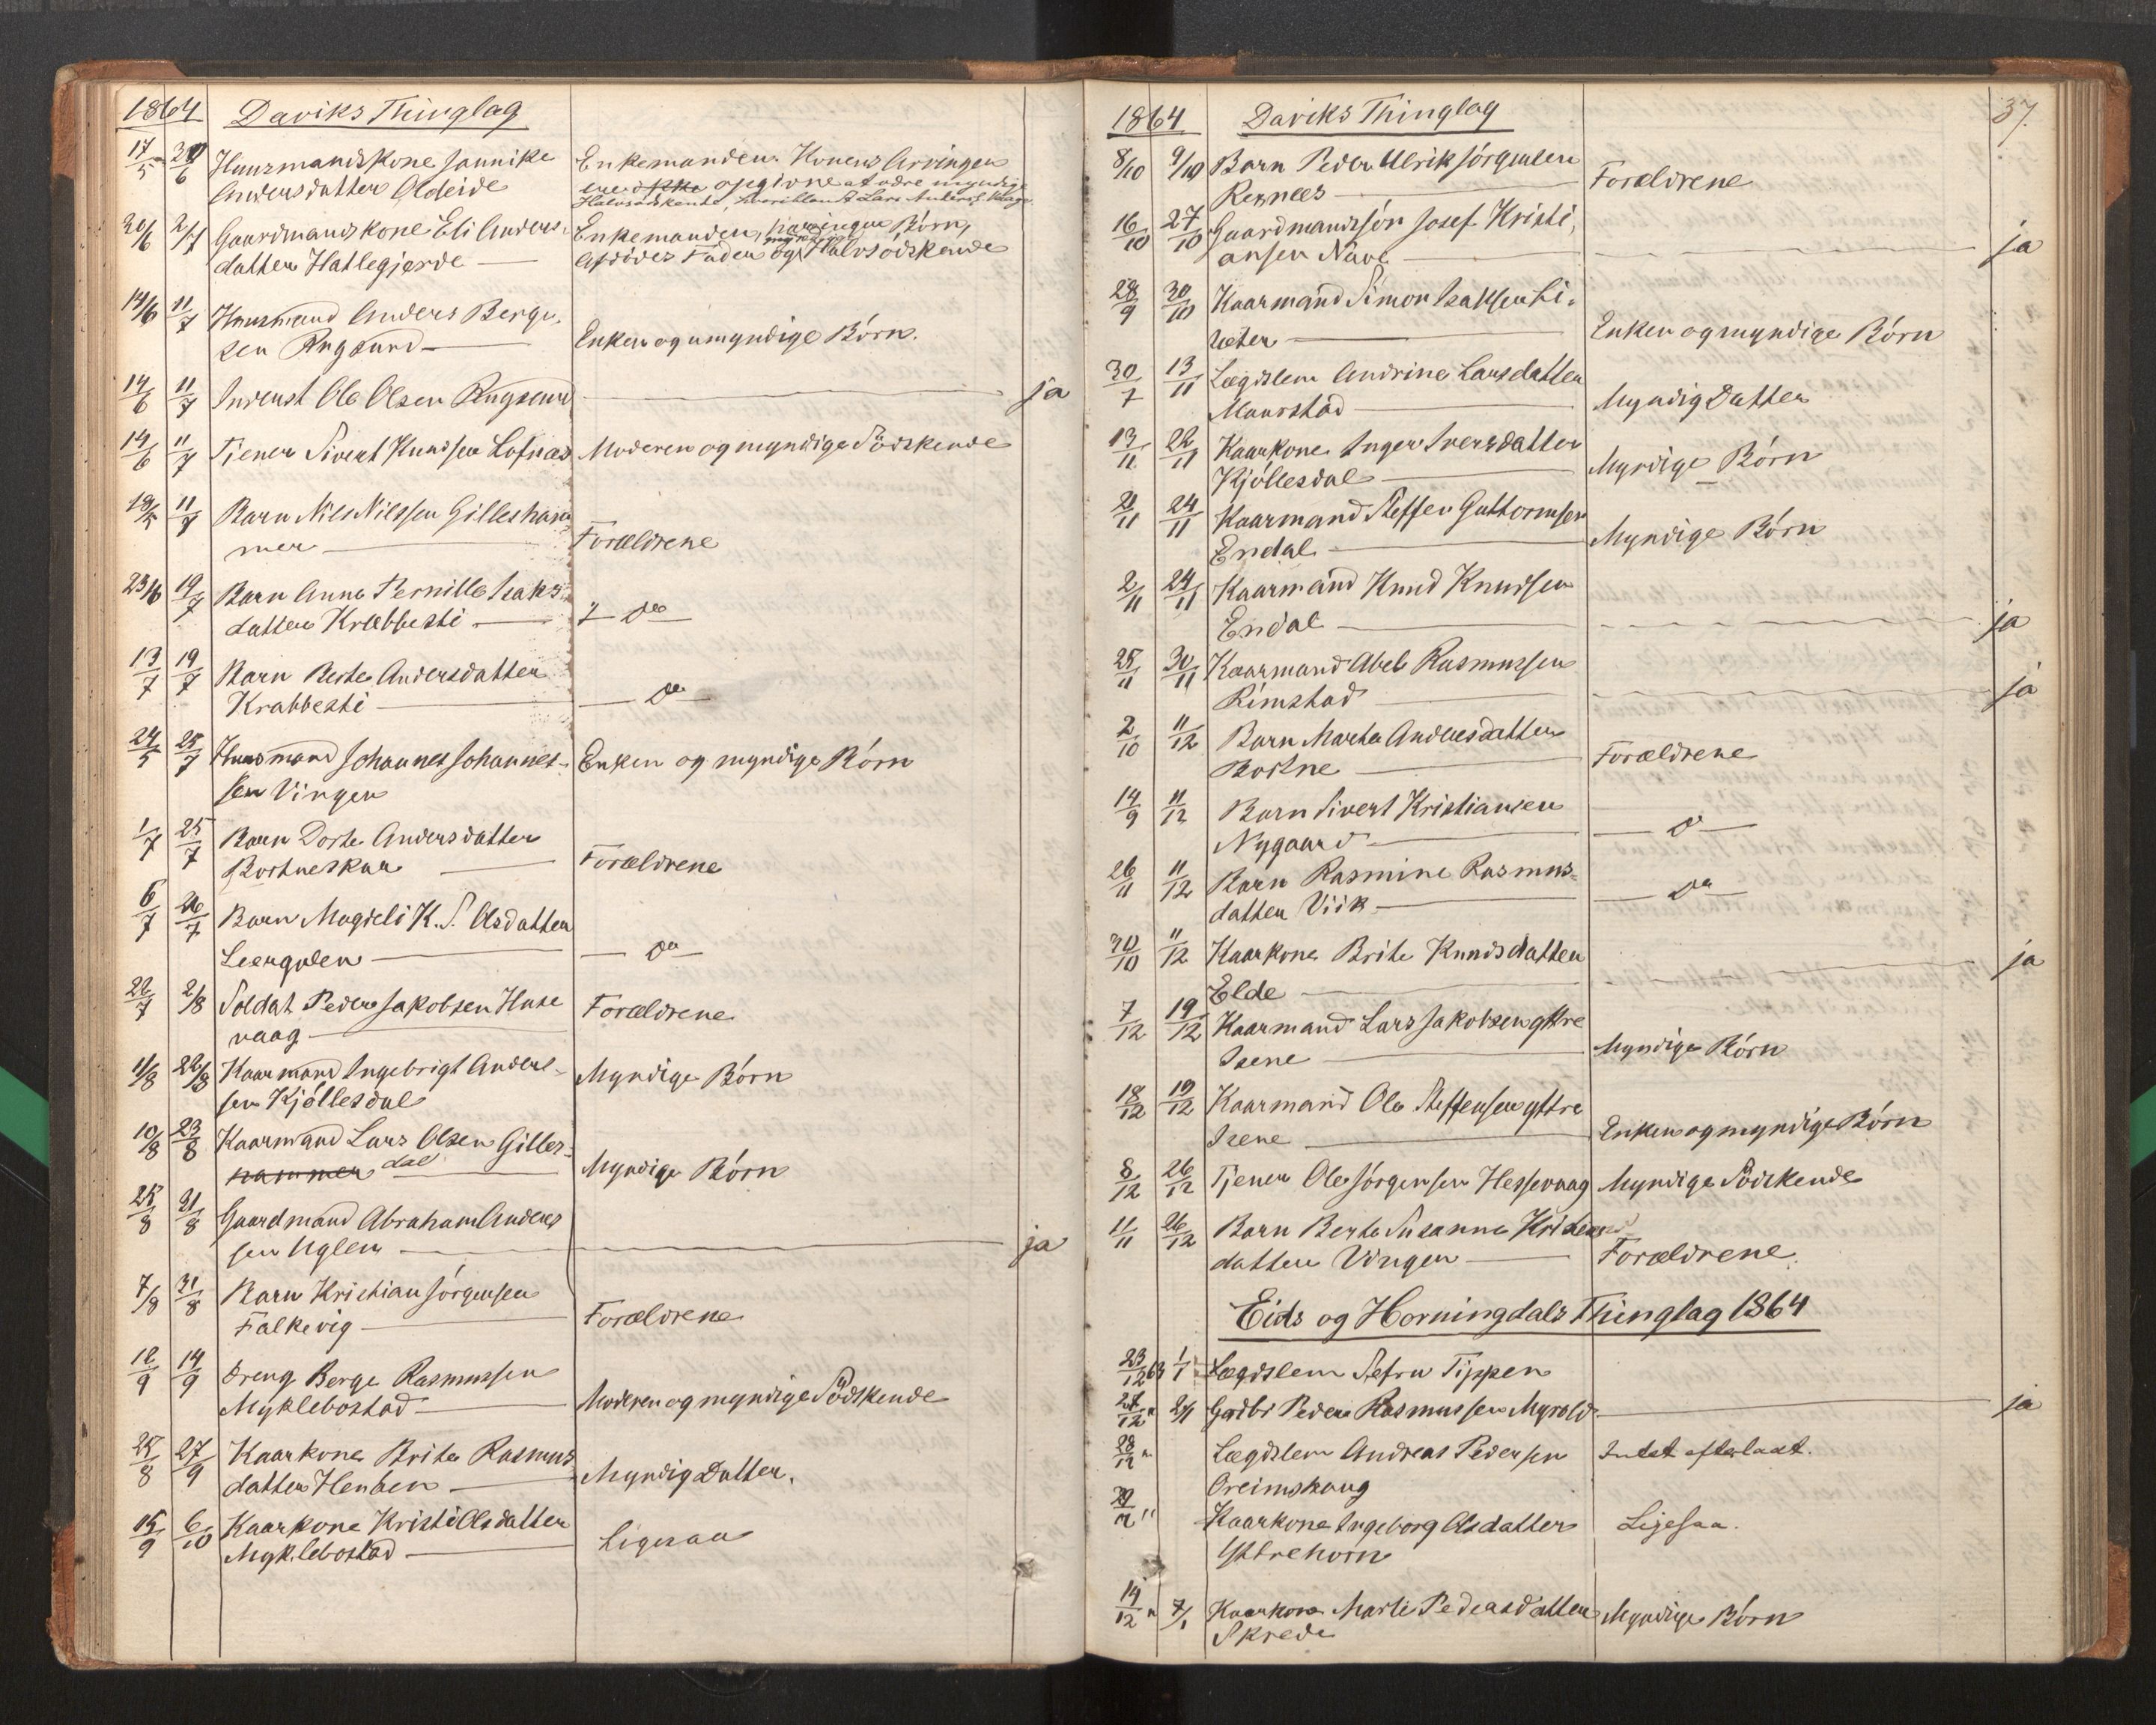 1864 Daviks Thinglag
17/5 20/6 Huusmandskone Jannike Enkemanden. Konens Arvinger
Andersdatter Oldeide ere opgivne at være myndige
Halvsødskende, hvoriblandt Lars
20/6 2/7 Gaardmandskone Eli Anders- Enkemanden, har ingen Børn,
datter Hatlegjerde — Afdødes Fader og myndige Halvsødskende
14/6 11/7 Huusmand Anders Berge-
sen Rugsund — Enken og umyndige Børn.
14/6 11/7 Inderst Ole Olsen Rugsund — ja
14/6 11/7 Tjener Sivert Knudsen Lofnæs Moderen og myndige Södskende
19/5 11/7 Barn Nils Nilssen Gillesham-
mer — Forældrene
23/6 19/7 Barn Anne Pernille Isaks-
datter Krabbesti — — do —
13/7 19/7 Barn Berte Andersdatter
Krabbesti — — do —
24/5 25/7 Huusmand Johannes Johannes- Enken og myndige Börn
sen Vingen
1/7 25/7 Barn Dorte Andersdatter
Bortneskar — Forældrene
6/7 26/7 Barn Magreli K. S. Olsdatter
Leergulen — — do —
22/7 2/8 Soldat Peder Jakobsen Huse Forældrene
vaag —
11/8 22/8 Kaarmand Ingebrigt Anders- Myndige Börn
sen Kjöllesdal
10/8 23/8 Kaarmand Lars Olsen Gilles-
hammer dal — Myndige Börn
25/8 31/8 Gaardmand Abraham Anders
sen Uglen — ja
7/8 31/8 Barn Kristian Jörgensen
Falkevig — Forældrene
12/9 14/9 Dreng Berge Rasmussen
Myklebostad — Moderen og myndige Södskende
25/8 27/9 Kaarkone Brite Rasmus
datter Henben — Myndig Datter.
15/9 6/10 Kaarkone Kristi Olsdatter
Myklebostad — Ligesaa
37.
1864 Daviks Thinglag
8/10 9/10 Barn Peder Ulrik Jörgensen
Rennees — Forældrene
16/10 27/10 Gaardmandssön Josef Kristi-
ansen Nave — ja
28/9 30/10 Kaarmand Simon Isaksen Li-
seter — Enken og myndige Börn
30/7 13/11 Lægdslem Andrine Larsdatter
Maurstad — Myndig Datter
13/11 22/11 Kaarkone Inger Iversdatter
Kjöllesdal — Myndige Börn
2/11 24/11 Kaarmand Steffen Guttormsen
Endal — Myndige Börn
2/11 24/11 Kaarmand Knud Knudsen
Endal — ja
25/11 30/11 Kaarmand Abel Rasmussen
Rimstad — ja
2/10 11/12 Barn Marte Andersdatter
Bortne — Forældrene
14/9 11/12 Barn Sivert Kristiansen
Nygaard — — do —
26/11 11/12 Barn Rasmine Rasmus-
datter Viik — — do —
30/10 11/12 Kaarkone Brite Knudsdatter
Elde — ja
7/12 19/12 Kaarmand Lars Jakobsen yttre
Isene — Myndige Börn
18/12 19/12 Kaarmand Ole Steffensen yttre
Isene — Enken og myndige Börn
8/12 26/12 Tjener Ole Jörgensen Hessevaag Myndige Södskende
11/11 26/12 Barn Berte Susanne Kristens
datter Vingen — Forældrene.
Eids og Horningdals Thinglag 1864
23/12 63 1/1 Lægdslem Tippen
27/12 " 2/1 Gadbr Peder Rasmussen Myrold — ja
28/12 " Lægdslem Andreas Pedersen Intet efterladt.
Oreimskaug
29/12 " Kaarkone Ingeborg Olsdatter Ligesaa.
Yttrehorn
14/12 " 7/1 Kaarkone Marte Pedersdatter Myndige Börn
Skrede